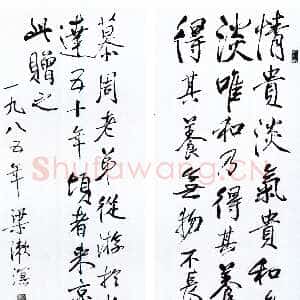 情貴淡氣貴和
淡唯和乃得其養
得其養無物不長
慕周老弟從游於
達五十年頃者來京
此贈之
一九八五年 梁漱溟
Shufawang.CN